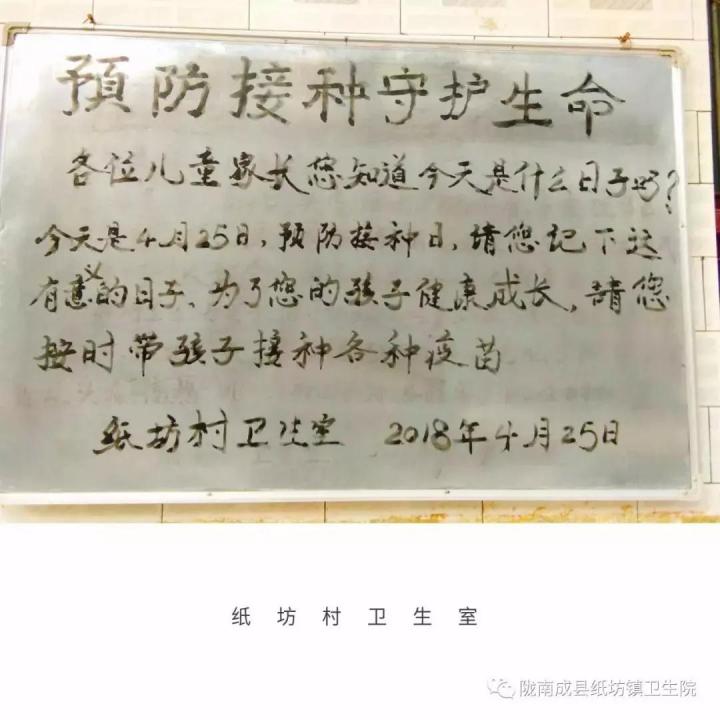 预防接种守护生命
各位儿童家长您知道今天是什么日子吗?
今天是4月25日,预防接种日,请您记下这
有意义的日子、为了您的孩子健康成长,请您
按时带孩子接种各种疫苗
纸坊村卫生室 2018年4月25日
纸坊村卫生室
陇南成县纸坊镇卫生院